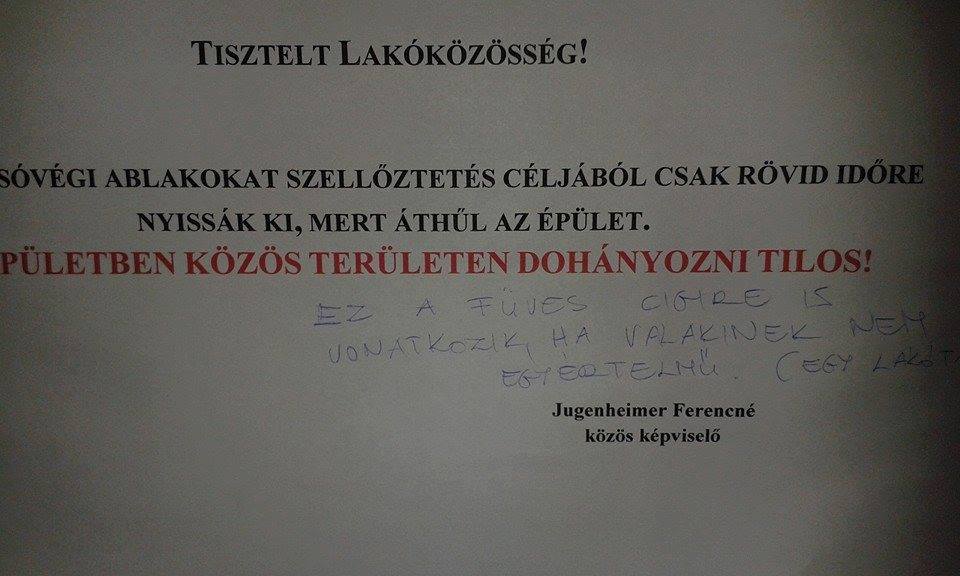 TISZTELT LAKÓKÖZÖSSÉG!
SÓVÉGI ABLAKOKAT SZELLŐZTETÉS CÉLJÁBÓL CSAK RÖVID IDŐRE
NYISSÁK KI, MERT ÁTHŰL AZ ÉPÜLET.
PÜLETBEN KÖZÖS TERÜLETEN DOHÁNYOZNI TILOS!
EZ A FÜVES CIGIRE IS
VONATKOZIK, HA VALAKINEK NEM
EGYÉRTELMŰ. (EGY LAKÓT
Jugenheimer Ferencné
közös képviselő